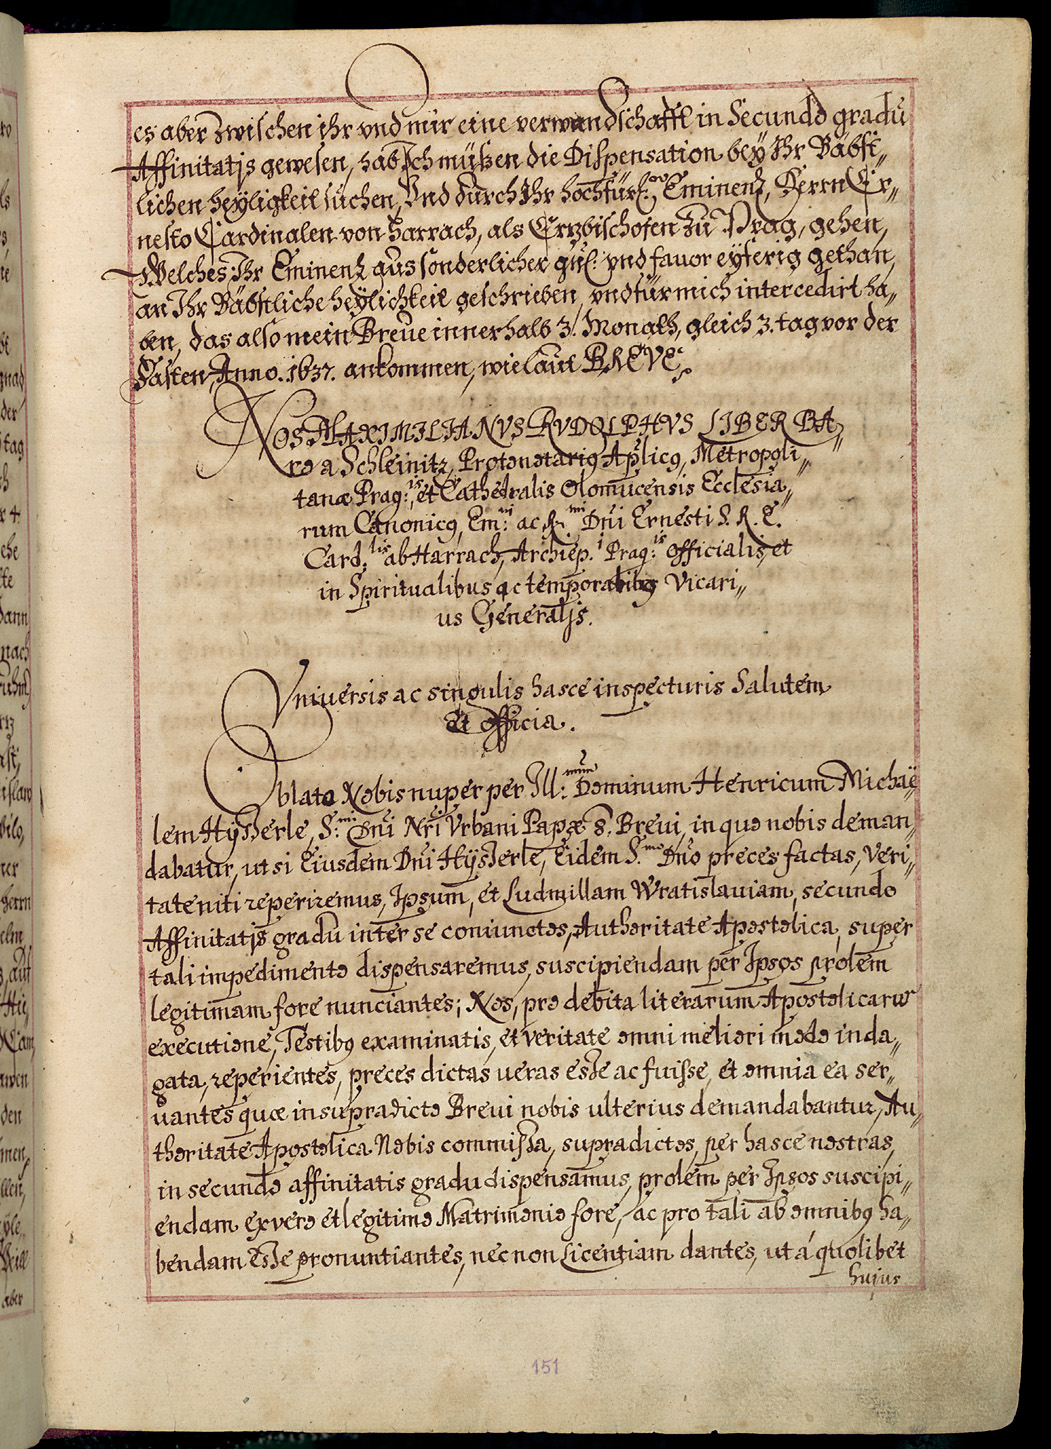 es aber zwischen ihr vnd mir eine verwandschafft in Secundo gradu
Affinitatis gewesen, hab Ich müßen die Dispensation bey Ihr Bäbst„
lichen heyligkeit suchen, Vnd durch Ihr hochfürl: Eminenz, Herrn Er„
nesto Cardinalen von Harrach, als Ertzbischofen zu Prag, gehen,
Welches Ihr Eminenz aus sonderlicher vnd favor eyferig gethan,
an Ihr Bäbstliche heylichkeit geschrieben, vnd für mich intercedirt ha„
ben, das also mein Breue innerhalb 3. Monath, gleich 3. tag vor der
Fasten, Anno. 1637. ankommen, wie laut BREVE.
NOS MAXIMILIANVS RVDOLPHVS LIBER BA„
ro a Schleinitz, Protonotarius Aplicus, Metropoli„
tanæ Prag:is et Cathedralis Olomucensis Ecclesia„
rum Canonicus, Em:mi ac R:mi Dni Ernesti S. R. E.
Card:lis ab Harrach, Archiep:i Prag:is Officialis, et
in Spiritualibus ac temporalibus Vicari„
us Generalis.
Vniversis ac singulis hasce inspecturis Salutem
Et Officia.
Oblato Nobis nuper per Ill:mum Dominum Henricum Michaë„
lem Hÿsserle, S:mi Dni Nri Vrbani Papæ 8. Brevi, in quo nobis deman„
dabatur, ut si Eiusdem Dni Hÿsserle, Eidem S:mo Dno preces factas, Veri„
tate niti reperiremus, Ipsum, et Ludmillam Wratislauiam, secundo
Affinitatis gradu inter se coniunctos, Authoritate Apostolica, super
tali impedimento dispensaremus, suscipiendam per Ipsos prolem
legitimam fore nunciantes; Nos, pro debita literarum Apostolicarum
executione, Testibus examinatis, et veritate omni meliori modo inda„
gata, reperientes, preces dictas ueras esse ac fuisse, et omnia ea ser„
uantes quæ in supradicto Brevi nobis ulterius demandabantur, Au„
thoritate Apostolica Nobis commissa, supradictos, per hasce nostras,
in secundo affinitatis gradu dispensamus, prolem per Ipsos suscipi„
endam ex vero et legitimo Matrimonio fore, ac pro tali ab omnibus ha„
bendam esse pronuntiantes, nec non Licentiam dantes, ut á quolibet
hujus
151